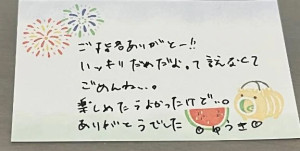 ご指名ありがとー!!
いっキリだめだよって言えなくて
ごめんね、、。
楽しめたらよかったけど、、。
ありがとうでした ゆうき